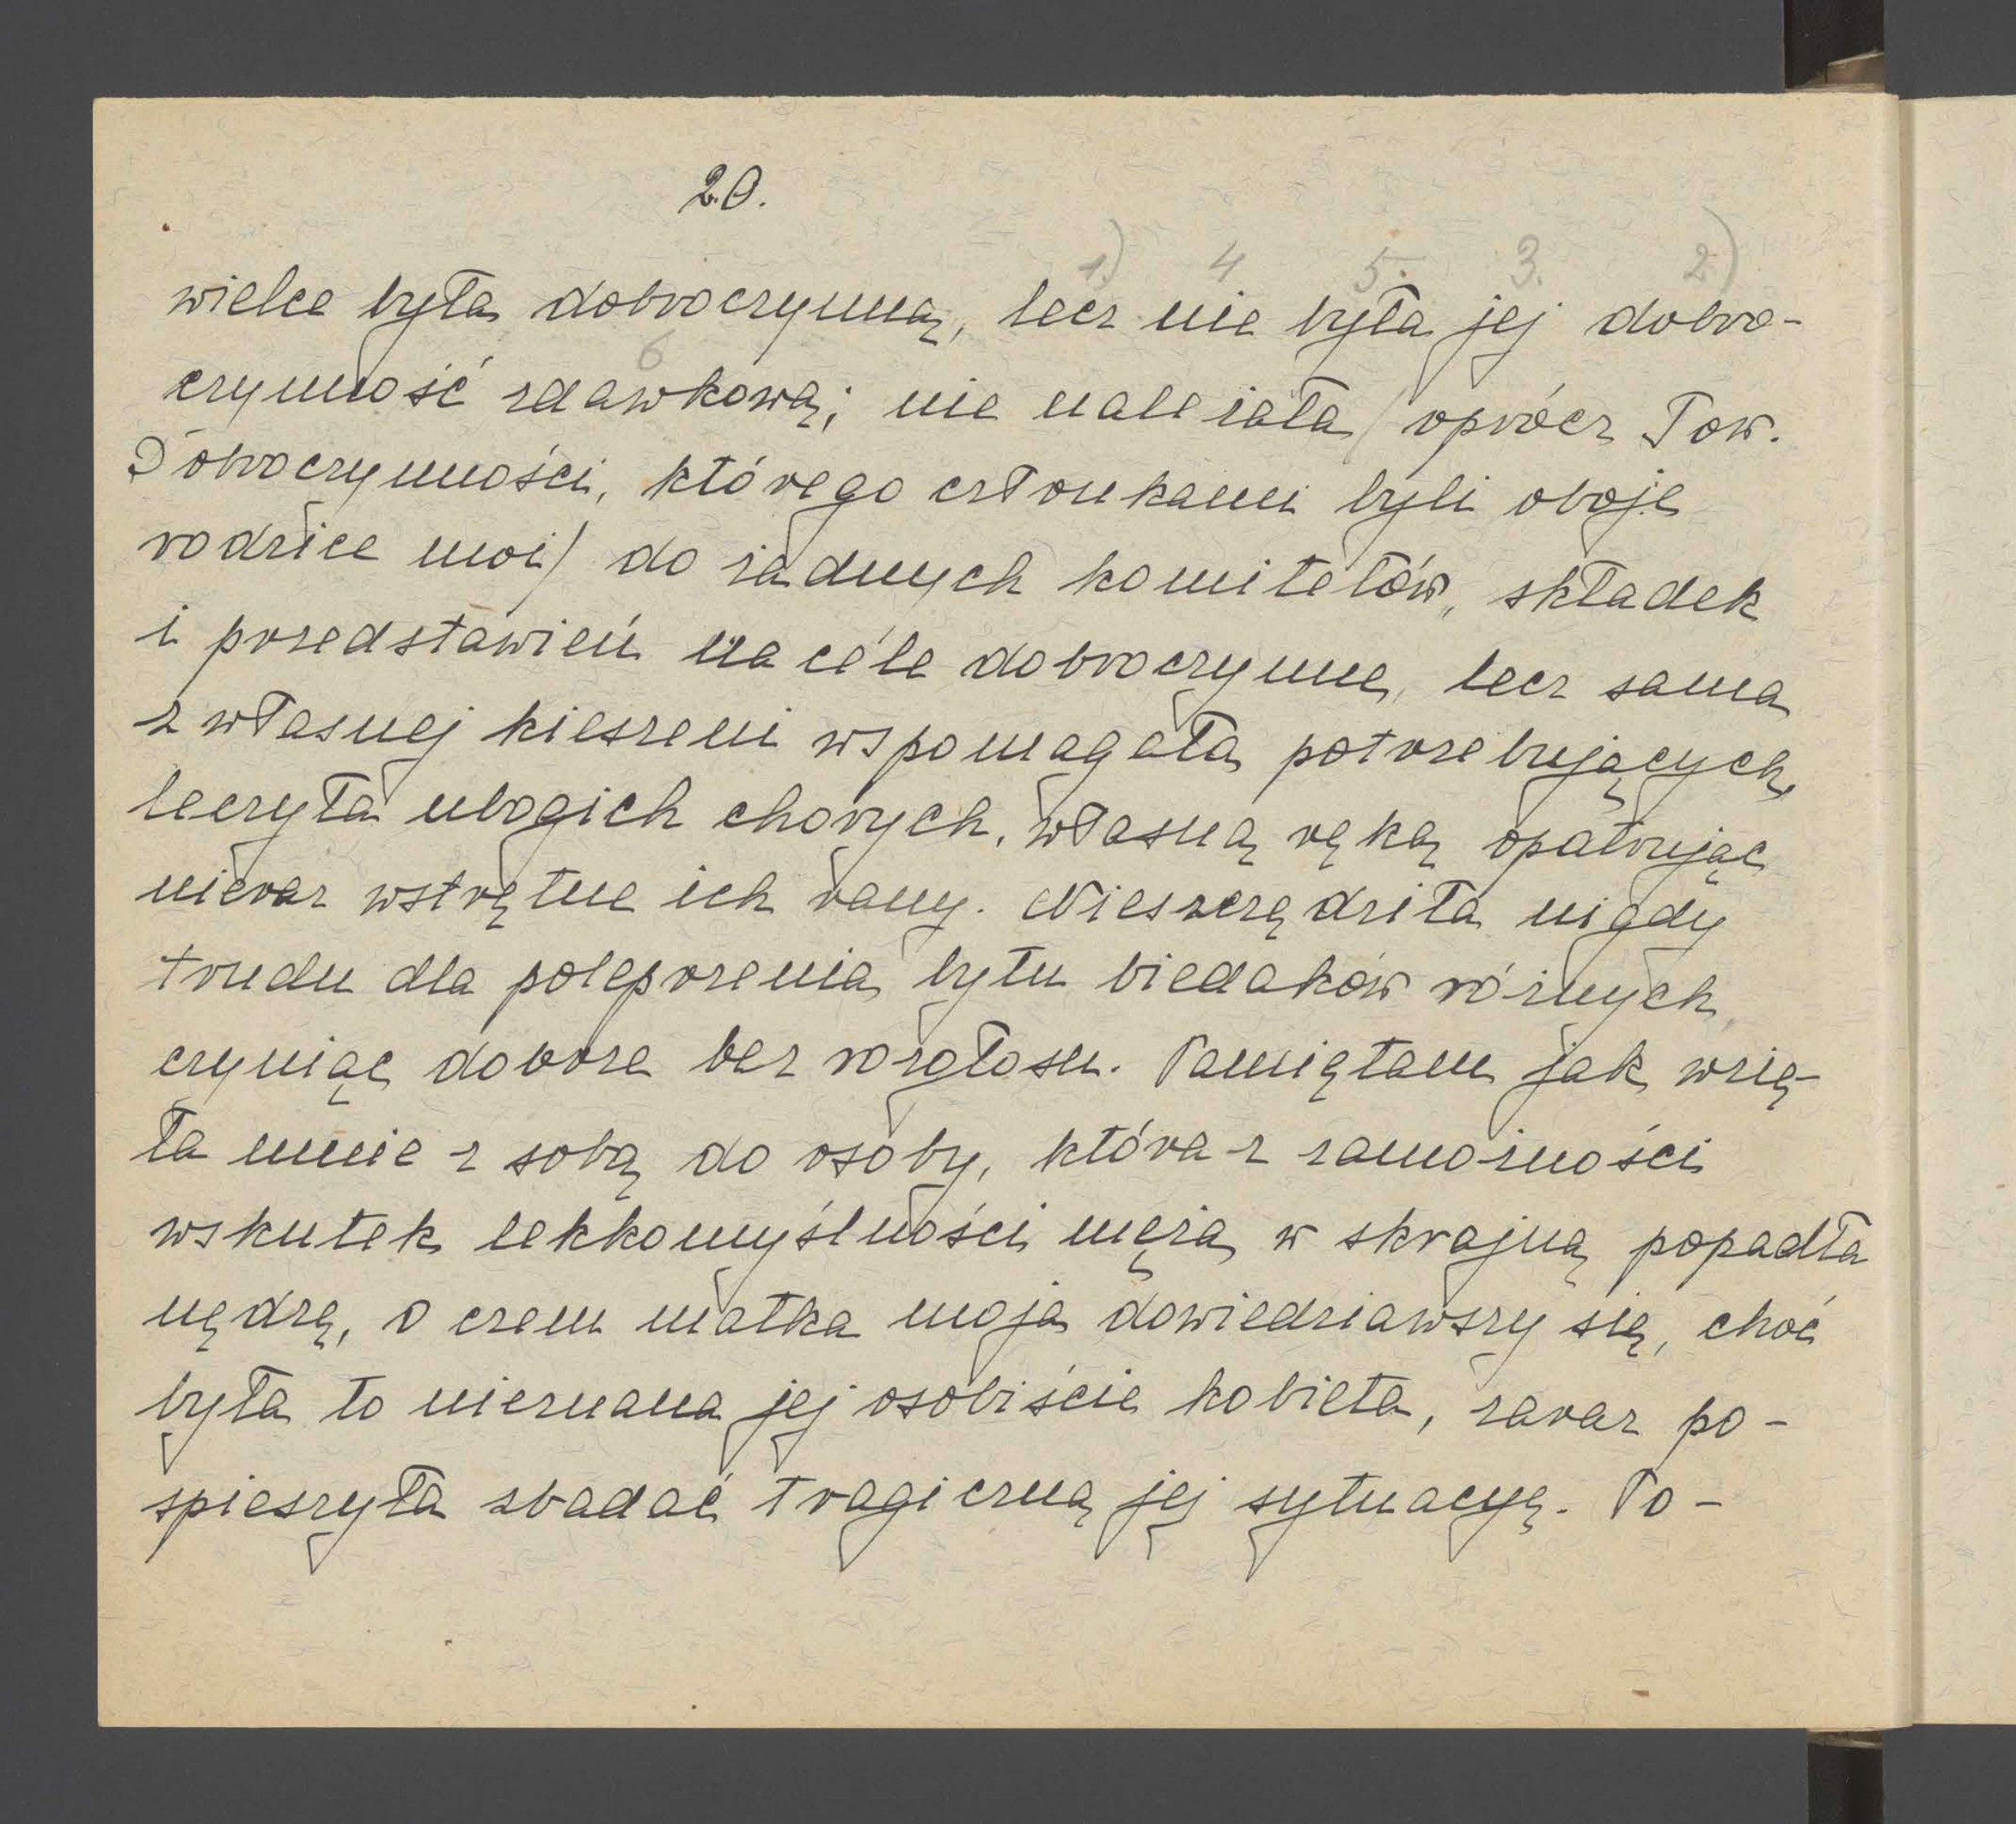 20.
1.) 4 5. 3. 2.)
wielce była dobroczynną, lecz nie była jej dobro-
6
czynność zdawkową; nie należała (oprócz Tow.
Dobroczynności, którego członkami byli oboje
rodzice moi) do żadnych komitetów, składek
i przedstawień na cele dobroczynne, lecz sama
z własnej kieszeni wspomagała potrzebujących,
leczyła ubogich chorych, własną ręką opatrując
nieraz wstrętne ich rany. Nieszczędziła nigdy
trudu dla polepszenia bytu biedaków różnych,
czyniąc dobrze bez rozgłosu. Pamiętam jak wzię-
ła mnie z sobą do osoby, która z zamożności
wskutek lekkomyślności męża w skrajną popadła
nędzę, o czem matka moja dowiedziawszy się, choć
była to nieznana jej osobiście kobieta, zaraz po-
spieszyła zbadać tragiczną jej sytuacyę. Po-